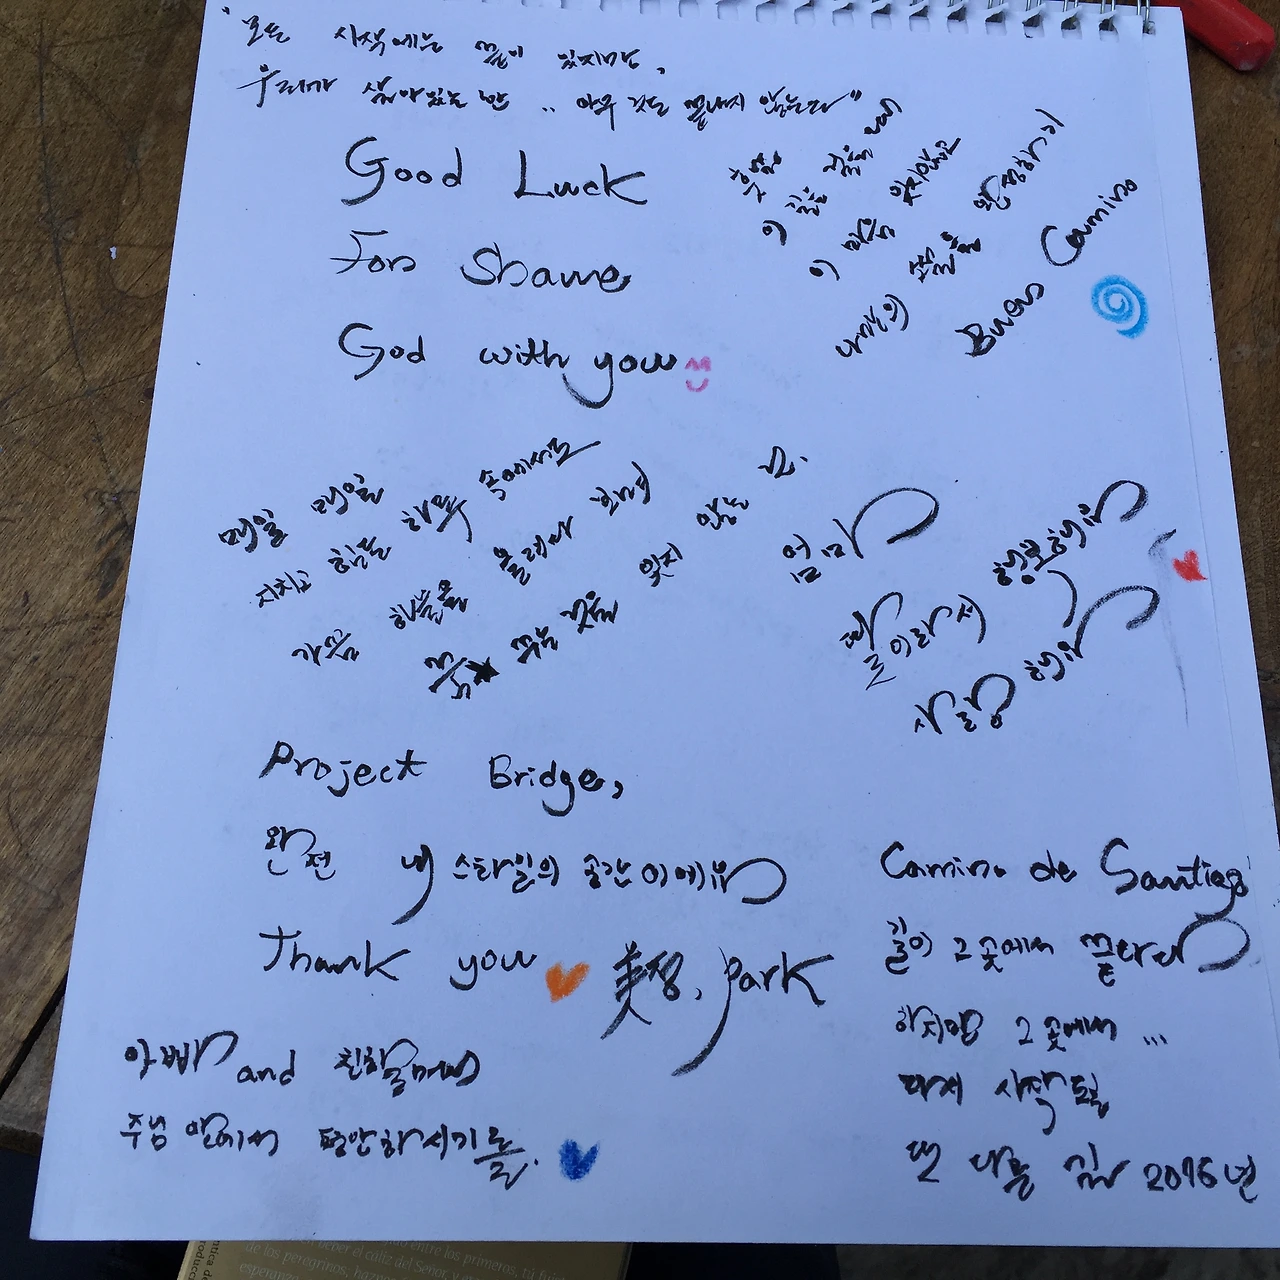 "모든 시작에는 끝이 있지만,
우리가 살아있는 한 .. 아무 것도 끝나지 않는다"
Good Luck
For Shawe
God with you
이 길을 걸을
이 마음 잊지않고
나만의 길을 완성하기
Buen Camino
매일 매일
지치고 힘든 하루 속에서도
가끔 하늘을 올려다
꿈 꾸는 것을 잊지 않는
엄마
딸이라서 행복해유
사랑해유
Project Bridge,
완전 내 스타일의 공간이에유
Thank you 美정, Park
아빠 and 친할머니
주님 안에서 평안하시기를.
Camino de Santiago
길이 그 곳에서 끝나
하지만 그 곳에서 ...
다시 시작될
또 다른 길 2016년
de las peregrinos,